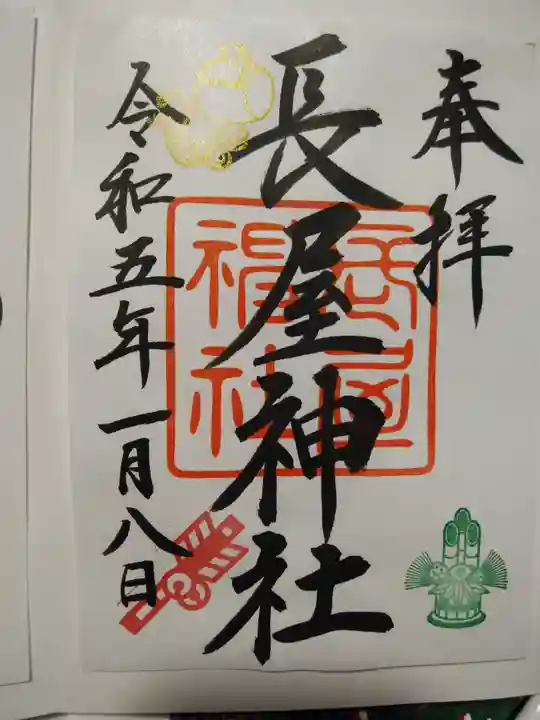 奉拝
長屋神社
令和五年一月八日
長屋神社